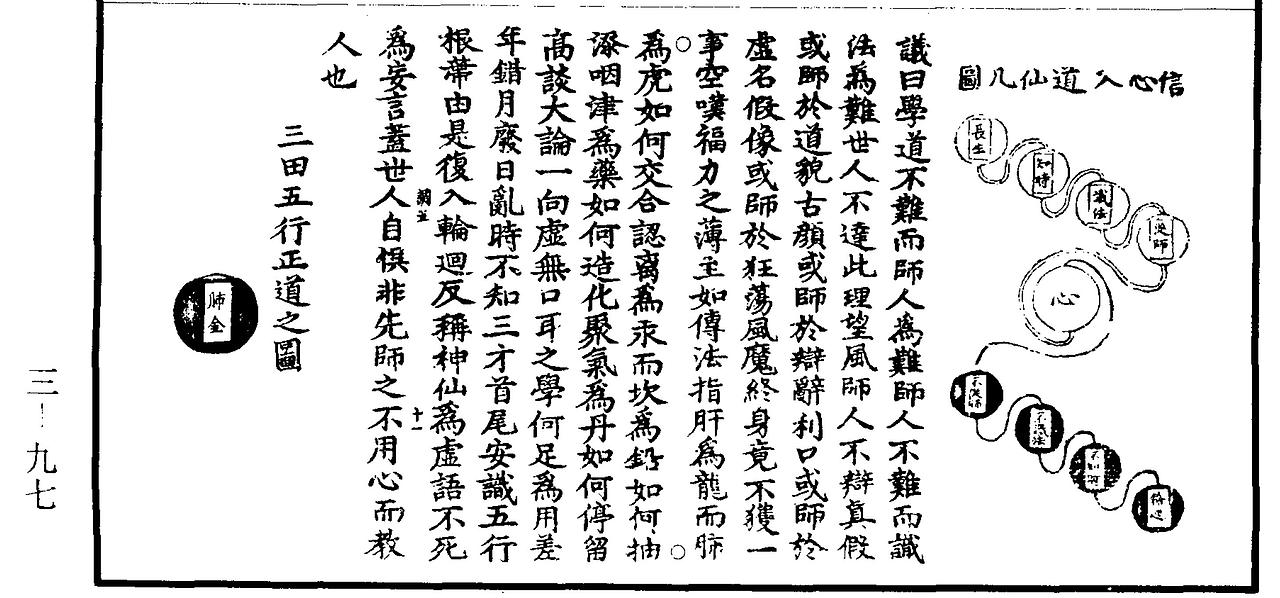 信心入道仙几圖
長生
知時
識法
從師
心
不從師
不識法
不知時
待邅
議曰學道不難而師人爲難師人不難而識
法爲難世人不達此理望風師人不辯眞假
或師於道貌古顔或師於辯辭利口或師於
虛名假像或師於狂蕩風魔終身竟不獲一
事空嘆福力之薄主如傳法指肝爲龍而肺
爲虎如何交合認离爲汞而坎爲鉛如何抽
添咽津爲藥如何造化聚氣爲丹如何停留
高談大論一向虛無口耳之學何足爲用差
年錯月廢日亂時不知三才首尾安識五行
根蔕由是復入輪迴反稱神仙爲虛語不死
爲妄言蓋世人自悞非先師之不用心而教
人也
十一
三田五行正道之圖
肺金
三–九七